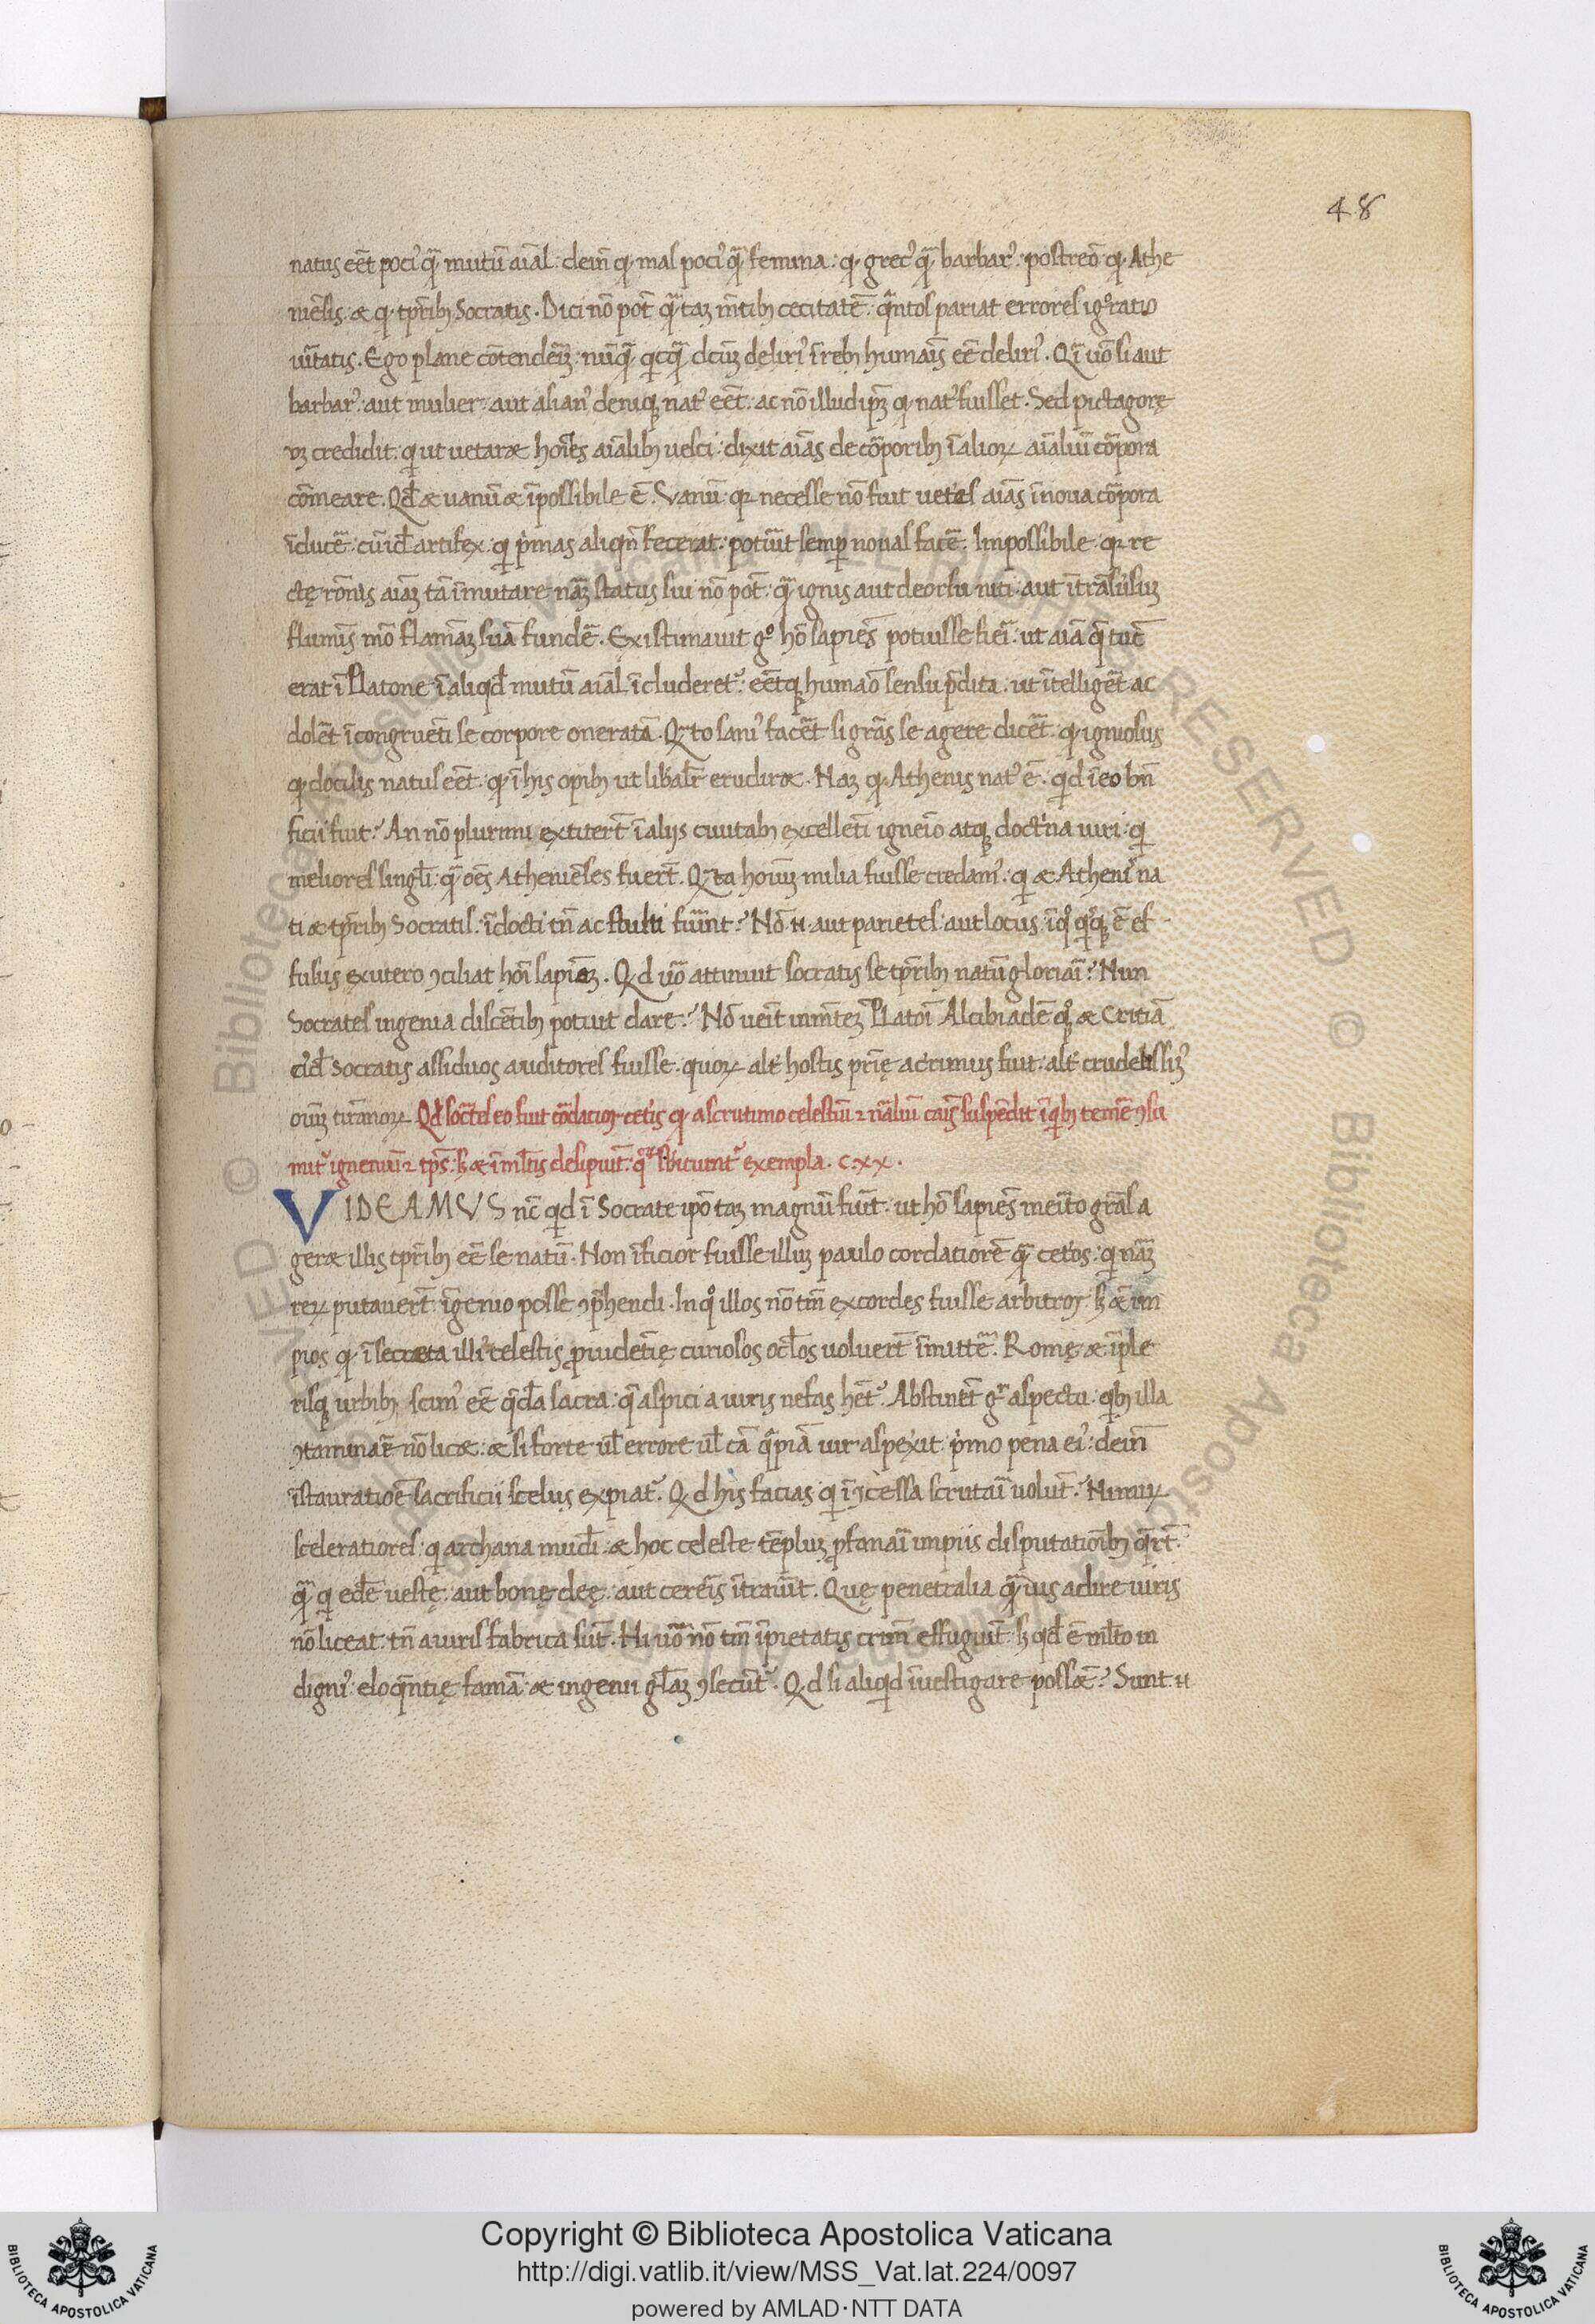 48
natus eēt poci᾽ qͣ̄ mutū aīal: dein̄ qꝛ mas poci᾽ qͣ̄ femina: qꝛ grec᾽ qͣ̄ barbar᾽: postreō qꝛ Athe
niēsis. & qꝛ tꝑrib; Socratis. Dici nō pot̄ qͣ̄taʒ m̄tib; cecitatē: qͣ̄ntos pariat errores igͦratio
uītatis. Ego plane cōtendeīʒ: nūqͣ̄ qͥcqͣ̄ dcūʒ deliri᾽ ī reb; humaīs eē deliri᾽. Qͣī uō si aut
barbar᾽: aut mulier: aut asian᾽ deniqʒ nat᾽ eēt: ac nō illud ip̄ʒ qꝛ nat᾽ fuisset. Sed pictagorę
uʒ credidit: qͥ ut uetar& hoīes aīalib; uesci: dixit aīas de cōꝑorib; ī alioꝝ aīaliuī cōꝑora
cōmeare. Qd̄ & uanū & īpossibile ē. Vanū: qꝛ necesse nō fuit uet᾽es aīas ī noua cōꝑora
īducē: cū id̄ artifex: qͥ pͥmas aliqn̄ fecerat: potūit semꝑ nouas facē. Impossibile: qꝛ re
ctę rōnis aīaʒ tā īmutare nāʒ status sui nō pot̄: qͣ̄ ignis aut deorsu niti: aut ī trāsūsuʒ
flumīs mō flamāʒ suā fundē. Existimauit gͦ hō sapiēs potuisse fieī: ut aīa qͣ̄ tūc
erat ī Platone ī aliqd̄ mutū aīal īcluderet᾽: eētqʒ humaō sensu p̄dita: ut ītelligēt ac
dolēt īcongruēti se corpore oneratā. Qͣ̄to sani᾽ facēt si grās se agere dicēt: qꝛ igniosus
qꝛ docilis natus eēt: qꝛ ī his opib; ut libāl̄r erudir&. Naʒ qꝛ Athenis nat᾽ ē: qd ī eo bn̄
ficii fuit? An nō plurimi extitert̄ ī alijs ciuitab; excelleti igneīo atqʒ doctͥna uiri: qͥ
meliores singlī: qͣ̄ oēs Atheniēses fuert̄. Qͣ̄ta houīʒ milia fuisse credam᾽: qͥ & Athenͥs na
ti & tꝑrib; Socratis: īdocti tn̄ ac stulti fūint? Nō .n. aut parietes: aut locus: ī qͦ qͥsqʒ ē ef
fusus ex utero ꝯciliat hoī sapīaʒ. Qd uō attinuit socratis se tꝑrib; natū gloriaī? Nun
Socrates ingenia discētib; potuit dare? Nō uēit in m̄teʒ Platoī Alcibiadē qͦqʒ & Critiā
eiͥd̄ Socratis assiduos auditores fuisse: quoꝝ alt᾽ hostis pr̄ię acrimus fuit: alt᾽ crudelissīʒ
oīuʒ tirānoꝝ. Qd̄ soct̄es eo fuit cōdacior cet᾽is qꝛ a scrutinio celestiū ⁊ nāliuī caīʒ suspēdit ī qͥb; temē ꝯsu
mit᾽ igneniuī ⁊ tp̄s: sꝫ & ī ml̄tis desipuit: qͦꝝ sbiciunt᾽ exempla. c.xx.
VIDEAMVS nc̄ qͥd ī Socrate ip̄o taʒ magnū fūit: ut hō sapiēs merito grās a
ger& illis tꝑrib; eē se natū. Non īficior fuisse illuʒ paulo cordatiorē qͣ̄ cet᾽os: qͥ nāʒ
reꝝ putauert̄ īgenio posse ꝯp̄hendi. In qͦ illos nō tm̄ excordes fuisse arbitror: sꝫ &ā im
pios qꝛ ī secreta illi᾽ celestis ꝓuidētię curiosos ocl̄os uoluert̄ īmittē. Romę & ī ple
risqʒ urbib; scim᾽ eē qd̄a sacra: qͣ̄ aspici a uiris nefas hēt᾽. Abstinēt gͥ aspectu: qͥb; illa
ꝯtaminarē nō lic&: & si forte ul̄ errore ul̄ cā qͣ̄piā uir aspexit: pͥmo pena ei᾽: dein̄
īstauratioē sacrificii scelus expiat᾽. Qd his facias qͥ īꝯcessa scrutaī uolūt? Nimiꝝ
sceleratiores: qͥ archana mudī & hoc celeste tēpluʒ ꝓfanaī impiis disputatiōib; qͣ̄rt̄:
qͣ̄ qͥ edē uestę: aut bonę deę: aut cereīs ītrauīt. Quę penetralia qͣ̄uis adire uiris
nō liceat: tn̄ a uiris fabrica sūt. Hi uō nō tm̄ īpietatis crim̄ effugiūt: sꝫ qd̄ ē ml̄to in
digni᾽: eloqn̄tię famā & ingenii gl̄aʒ ꝯsecunt᾽. Qd si aliqͥd īuestigare poss&? Sunt .n.
Copyright © Biblioteca Apostolica Vaticana
http://digi.vatlib.it/view/MSS_Vat.lat.224/0097
powered by AMLAD·NTT DATA